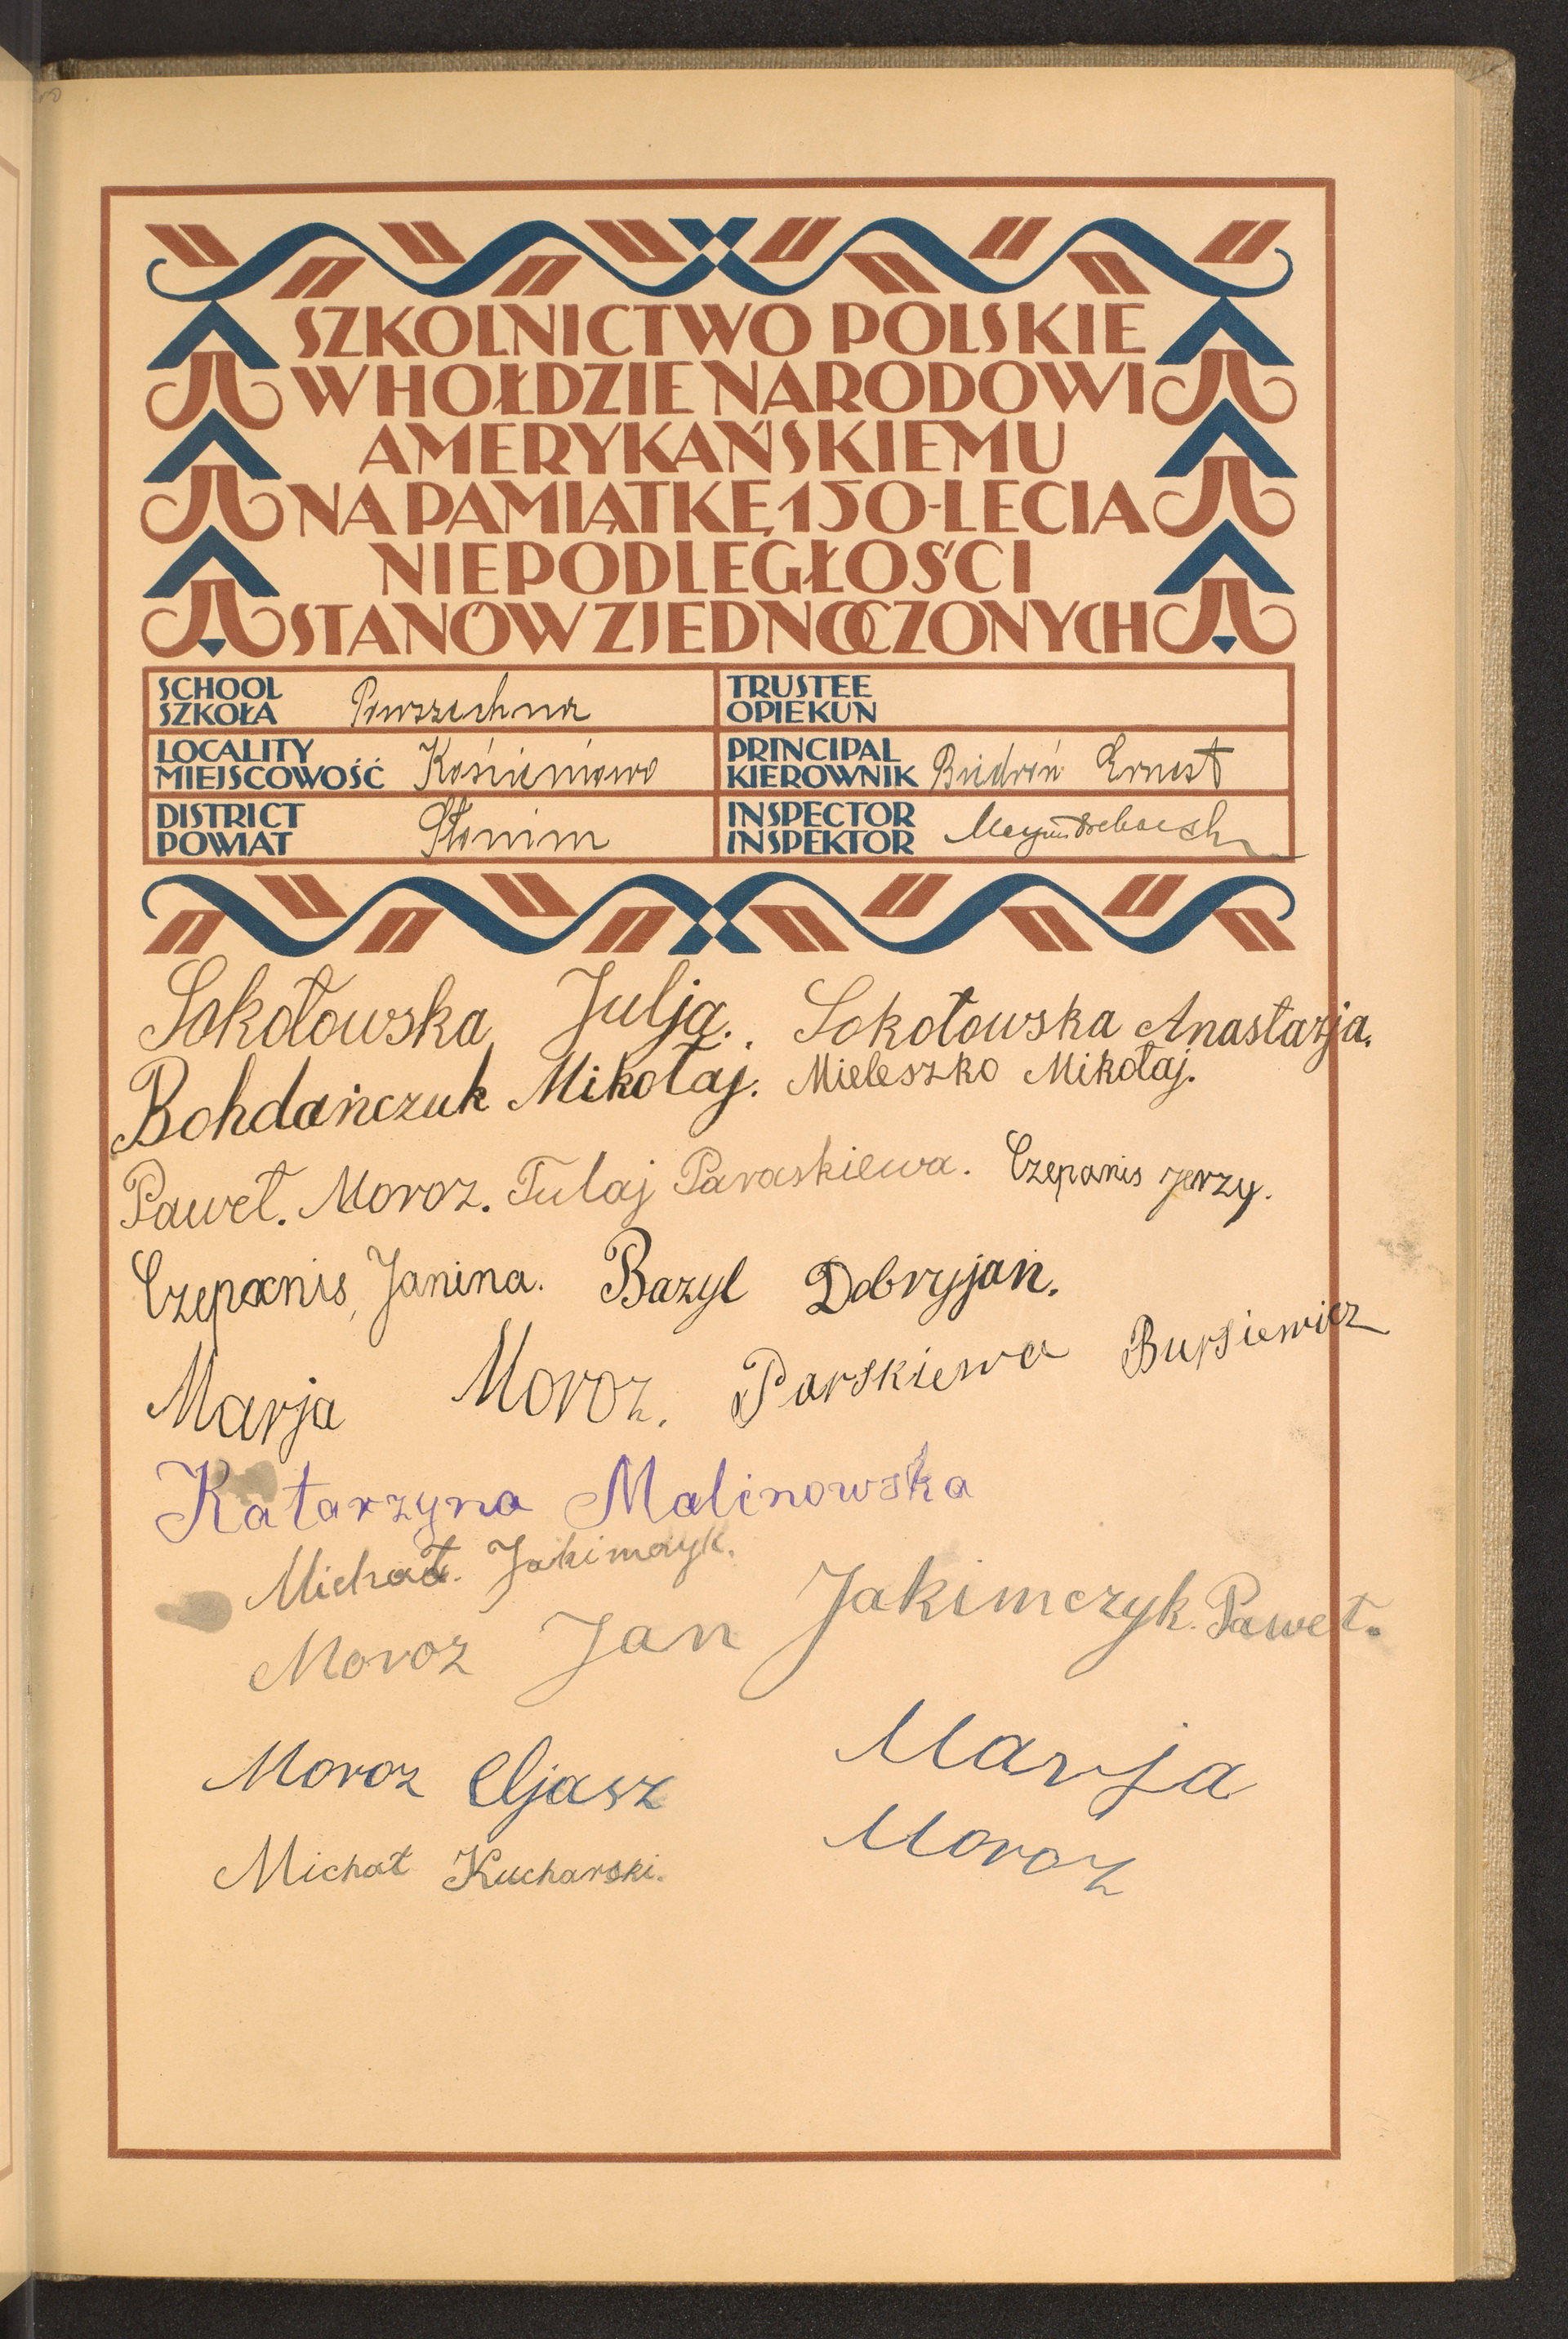 SZKOLNICTWO POLSKIE
W HOŁDZIE NARODOWI
AMERYKAŃSKIEMU
NA PAMIĄTKĘ 150-LECIA
NIEPODLEGŁOŚCI
STANÓW ZJEDNOCZONYCH
SCHOOL
SZKOŁA Powszechna
TRUSTEE
OPIEKUN
LOCALITY
MIEJSCOWOŚĆ Kośnieniowo
PRINCIPAL
KIEROWNIK Ernest
DISTRICT
POWIAT Słonim
INSPECTOR
INSPEKTOR
Sokołowska Julja. Sokołowska Anastazja.
Bohdańczuk Mikołaj. Mieleszko Mikołaj.
Paweł. Moroz. Tulaj Paraskiewa. Czepanis Jerzy.
Czepanis, Janina. Bazyl Dobryjan.
Marja Moroz. Parskiewa Bursiewicz
Katarzyna Malinowska
Michał. Jakimczyk.
Moroz Jan Jakimczyk. Paweł.
Moroz Eljasz Marja
Michał Kucharski. Moroz